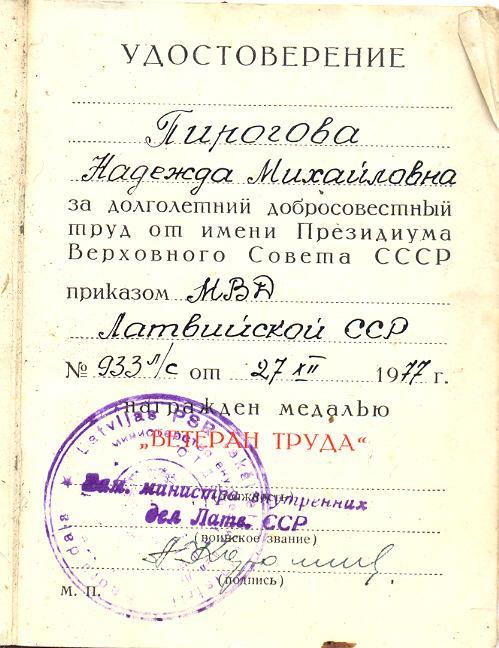 УДОСТОВЕРЕНИЕ
Пирогова
Надежда Михайловна
за долголетний добросовестный
труд от имени Президиума
Верховного Совета СССР
приказом МВД
Латвийской ССР
№ 933 л/с от 27 XII 1977 г.
награжден медалью
„ВЕТЕРАН ТРУДА“
Latvijas PSR
Зам. министра внутренних
(должность)
дел Латв. ССР
(воинское звание)
(подпись)
М. П.